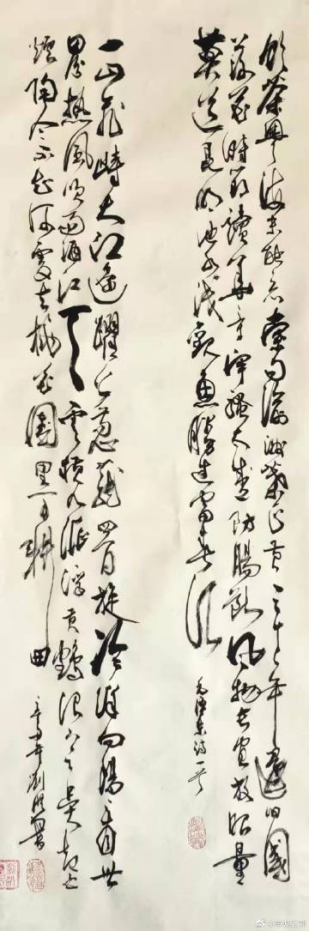 飲茶粤海未能忘索句渝州葉正黄三十一年還旧國
落花时节读华章牢骚太盛防腸断风物长宜放眼量
莫道昆明池水浅觀魚勝过富春江
毛泽东诗一首
一山飛峙大江边躍上葱茏四百旋冷眼向洋看世
界热風吹雨洒江天雲横九派浮黄鹤浪下三吴起白
烟陶令不知何处去桃花園里可耕田